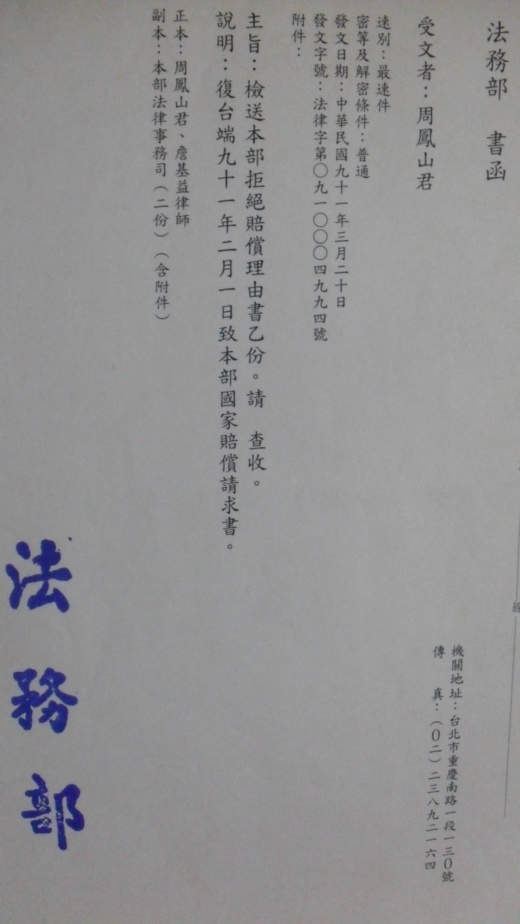 法務部　書函
機關地址：台北市重慶南路一段一三０號
傳　　真：（０二）二三八九二一六四
受文者：周鳳山君
速別：最速件
密等及解密條件：普通
發文日期：中華民國九十一年三月二十日
發文字號：法律字第○九一○○○四九九四號
附件：
主旨：檢送本部拒絕賠償理由書乙份。請　查收。
說明：復台端九十一年二月一日致本部國家賠償請求書。
正本：周鳳山君、詹基益律師
副本：本部法律事務司（二份）（含附件）
法務部
線